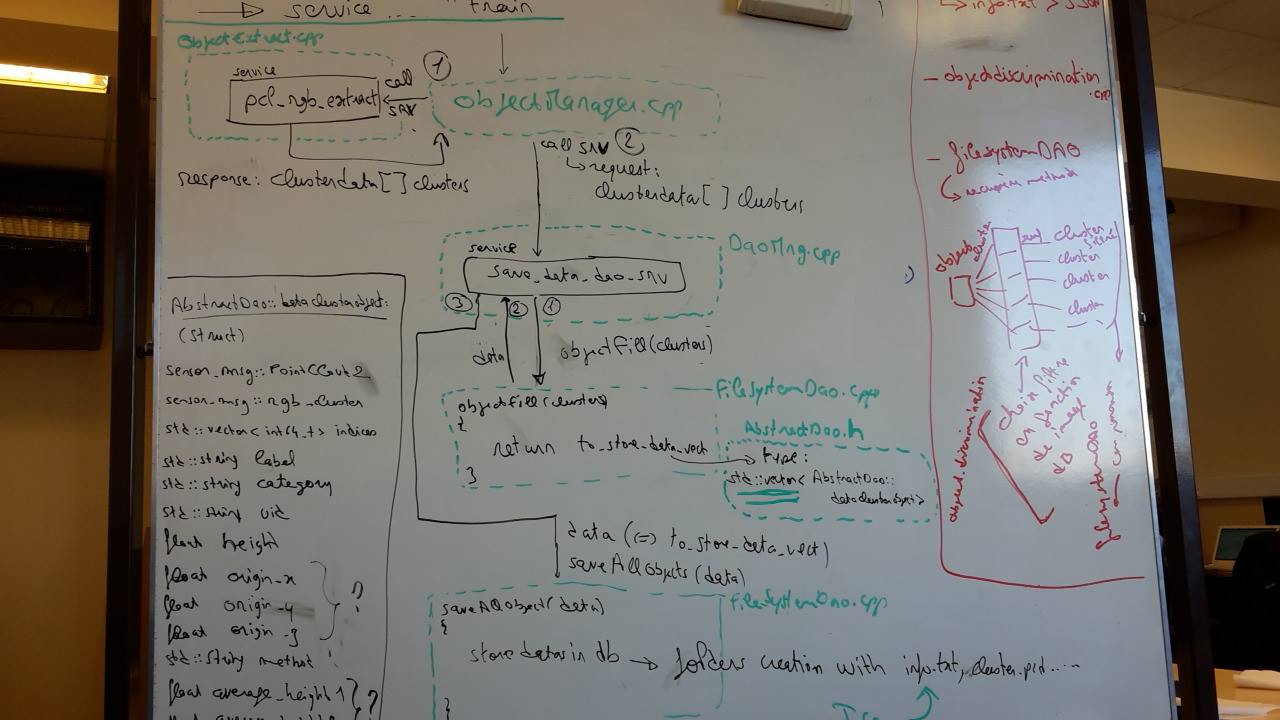 service .... train
ObjectExtract.cpp
service
pcl_rgb_extract
call
SRV
1
ObjectManager.cpp
response: clusterdata[] clusters
call SRV 2
request:
clusterdata[] clusters
DaoMng.cpp
service
save_data_dao_srv
3
2
1
data
objectFill(clusters)
FileSystemDao.cpp
objectFill(clusters)
{
return to_store_data_vect
}
AbstractDao.h
type:
std::vector< AbstractDao::
dataclusterobject>
data (<=> to_store_data_vect)
saveAllObjects(data)
FileSystemDao.cpp
saveAllObject(data)
{
store datas in db → folders creation with info.txt, cluster.pcd.....
}
AbstractDao::dataclusterobject:
(struct)
sensor_msg::PointCloud2
sensor_msg::rgb_cluster
std::vector<int64_t> indices
std::string label
std::string category
std::string uid
float height
float origin_x
float origin_y
float origin_z
?
std::string method
float average_height1
?
info.txt > JSON
- objectdiscrimination
.cpp
- filesystemDAO
object
cluster
cluster
cluster
cluster
cluster
object discrimination
en fonction
de image
filesystemDAO